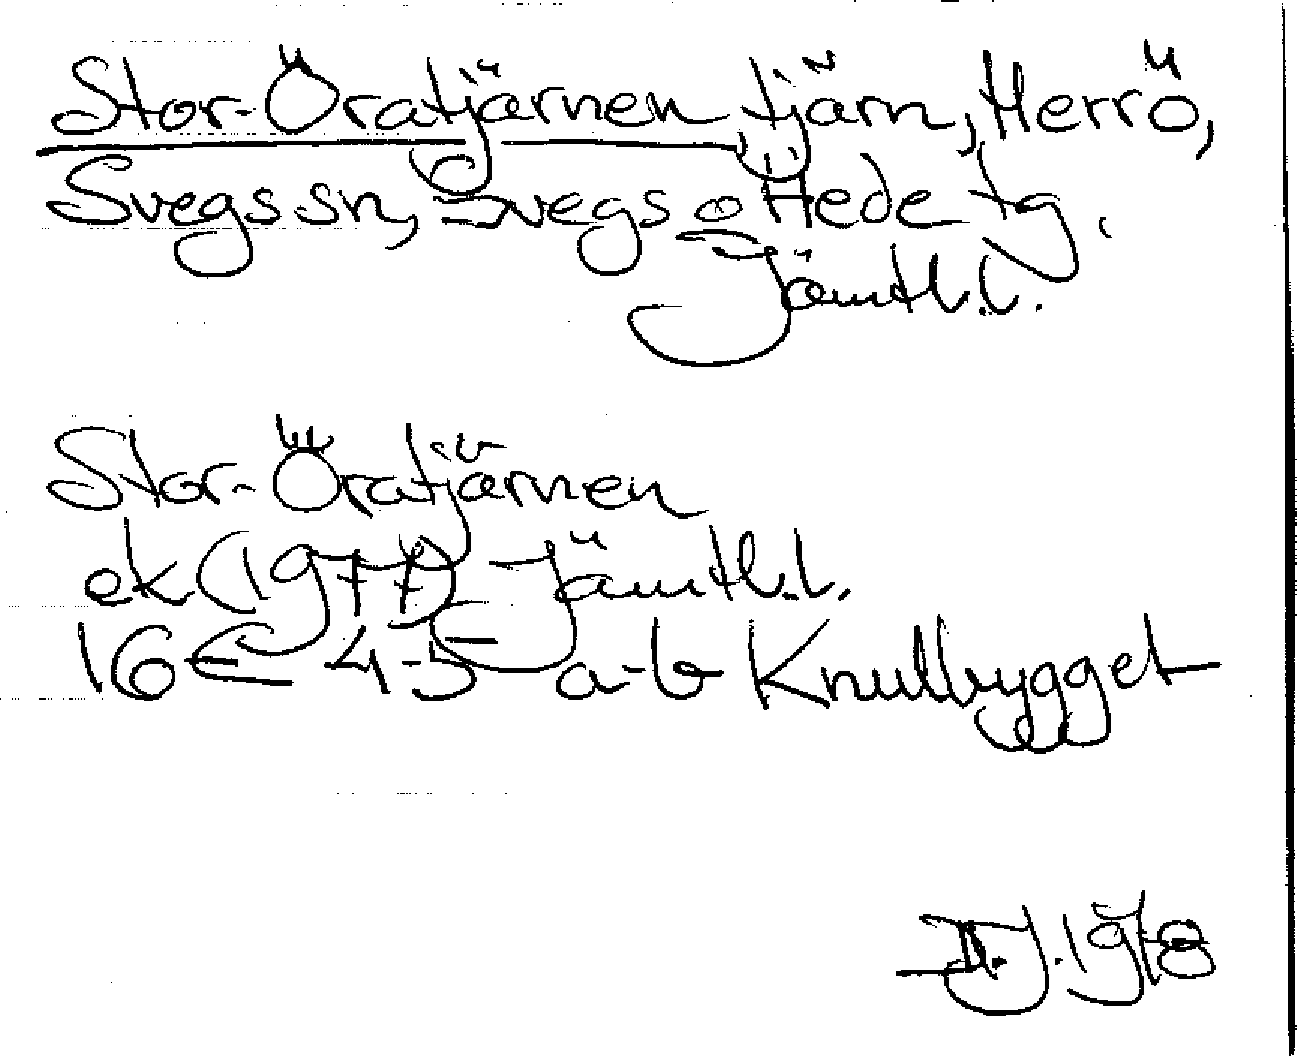 Stor-Öratjärnen tjärn, Herrö,
Svegs sn, Svegs o Hede tg.
Jämtl.l.
Stor-Öratjärnen
ek (1977) Jämtl.l.
16E 4-5 a-b Knullbygget
D.J.1978